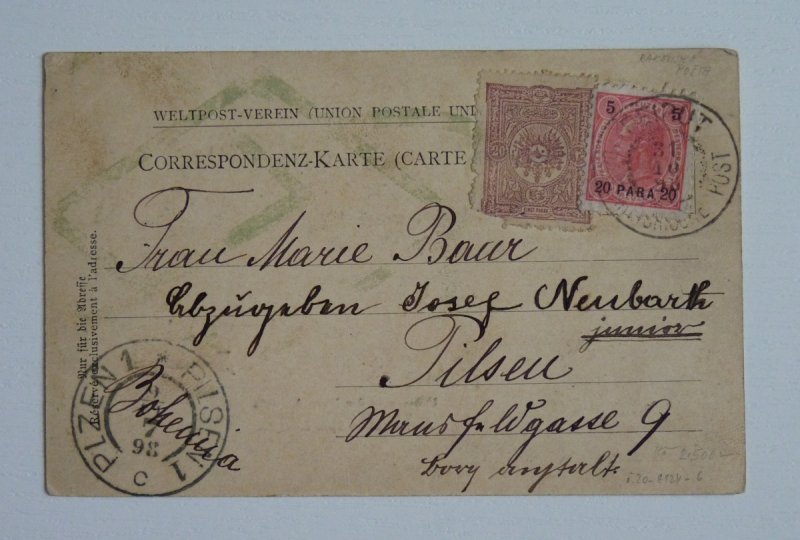 WELTPOST-VEREIN (UNION POSTALE UNI
CORRESPONDENZ-KARTE (CARTE
5 5
20 PARA 20
20
POST
Frau Marie Baur
Abzugeben Josef Neubarth
junior
Pilsen
Mansfeldgasse 9
Nur für die Adresse
Réservé exclusivement à l'adresse.
PLZEŇ 1 * PILSEN 1
98
C
Bohemia